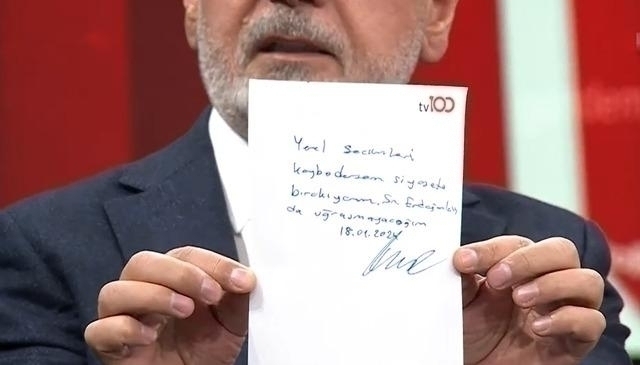 tv100
Yerel Seçimleri
kaybedersem siyaseti
bırakıyorum. Sn. Erdoğanla
da uğraşmayacağım
18.01.2024